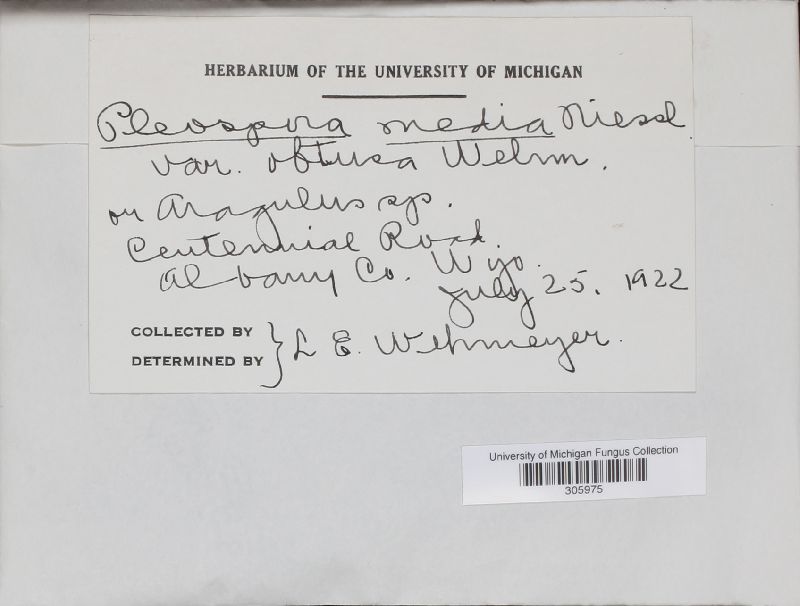 HERBARIUM OF THE UNIVERSITY OF MICHIGAN
Pleospora media Niessl
var. obtusa Wehm.
on Aragulus sp.
Centennial Road.
Albany Co. Wyo.
July 25. 1922
COLLECTED BY
DETERMINED BY } L E. Wehmeyer.
University of Michigan Fungus Collection
305975